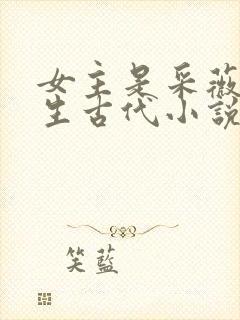 女主是采薇
生古代小說
笑藍